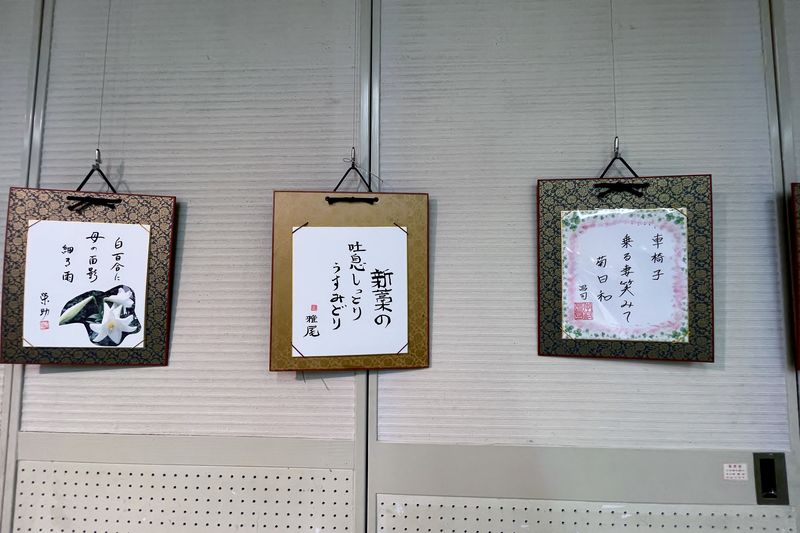 白百合に
母の面影
細る雨
新藁の
吐息しっとり
うすみどり
雅尾
車椅子
乗る妻笑みて
菊日和